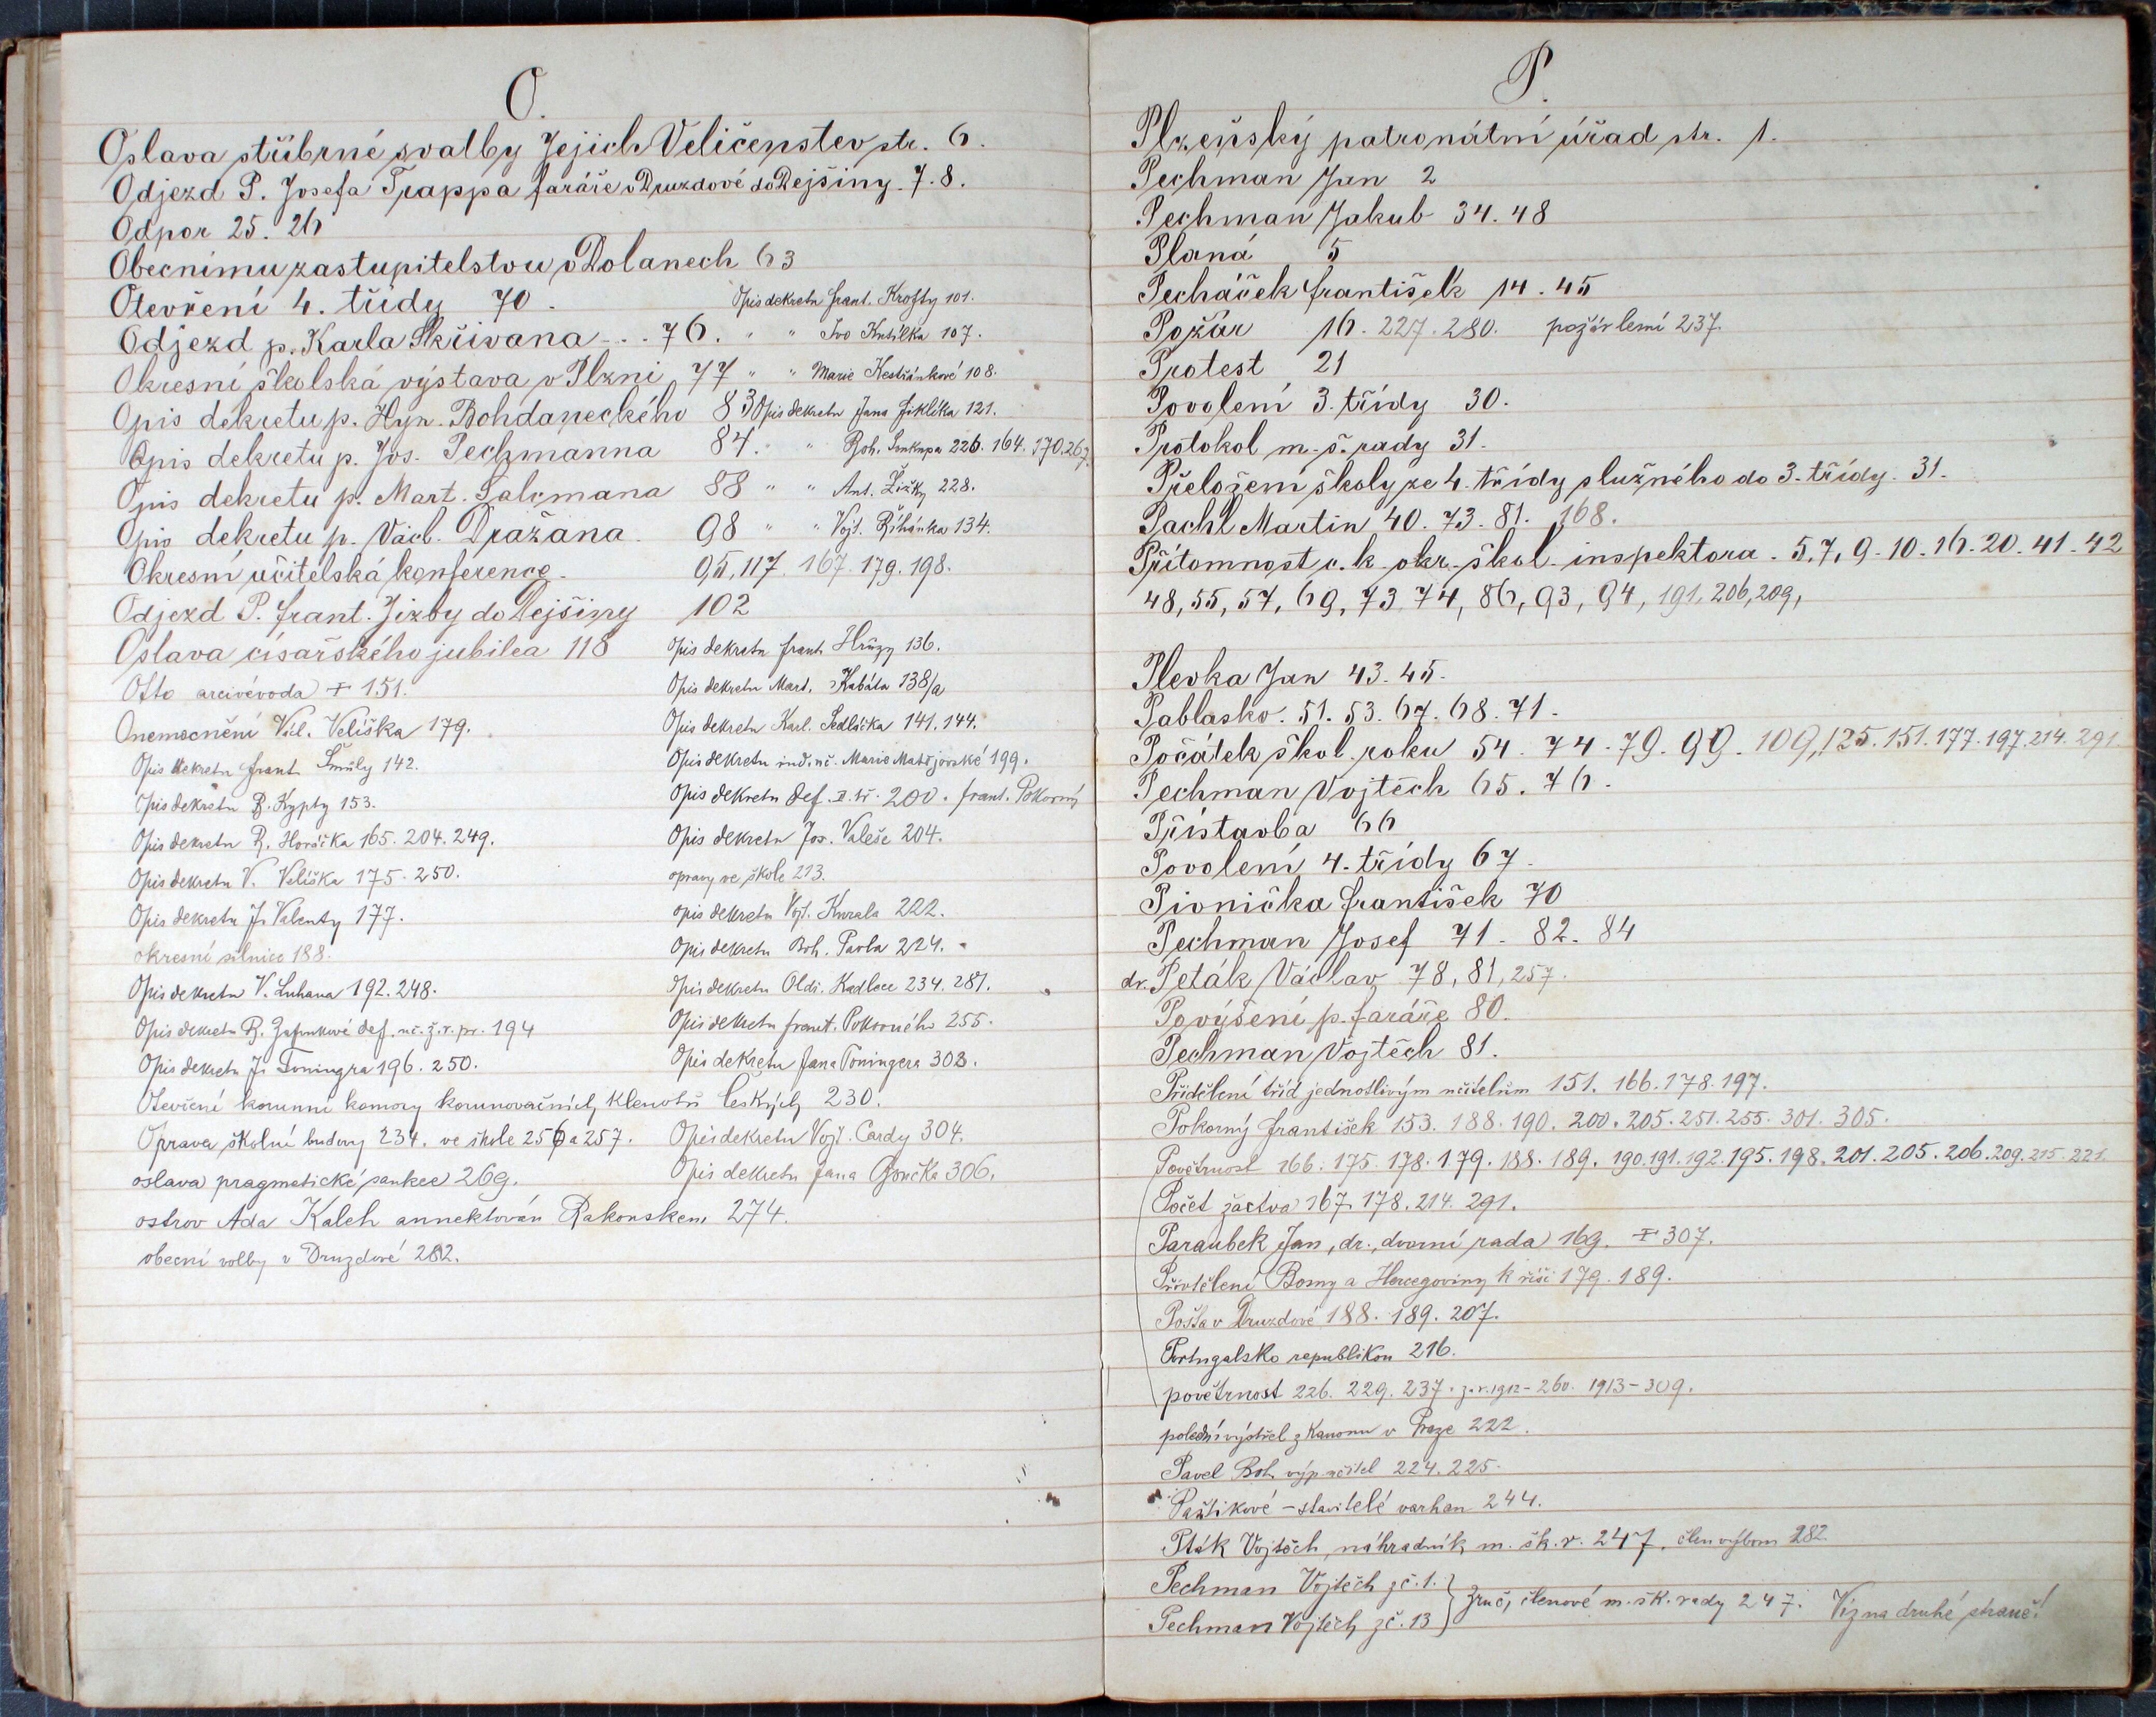 O.
Oslava stříbrné svatby Jejich Veličenstev str. 6.
Odjezd P. Josefa Trappa faráře v Druzdové do Dejšiny. 7. 8.
Odpor 25. 26
Obecnímu zastupitelstvu v Dolanech 63
Otevření 4. třídy 70. Opis dekretu Frant. Krofty 101.
Odjezd p. Karla Skřivana - . . 76. " " Ivo Kutílka 107.
Okresní školská výstava v Plzni 77 " " Marie Kestřánkové 108.
Opis dekretu p. Hyn. Bohdaneckého 83 Opis dekretu Jana Jiklíka 121.
Opis dekretu p. Jos. Pechmanna 84. " Boh. Soukupa 226. 164. 170. 267.
Opis dekretu p. Mart. Salcmana 88 " " Ant. Žižky 228.
Opis dekretu p. Václ. Dražana. 98 " " Vojt. Řihánka 134.
Okresní učitelská konference. 95, 117. 167. 179. 198.
Odjezd P. Frant. Jizby do Dejšiny 102
Oslava císařského jubilea 118 Opis dekretu Frant. Hrůzy 136.
Otto arcivévoda + 151. Opis dekretu Mart. Kabáta 138/a
Onemocnění Václ. Velíška 179. Opis dekretu Karl. Sedláčka 141. 144.
Opis dekretu Frant. Šmůly 142. Opis dekretu ind. uč. Marie Matějovské 199.
Opis dekretu B. Kypty 153. Opis dekretu def. II. tř. 200. Frant. Pokorný
Opis dekretu R. Horáčka 165. 204. 249. Opis dekretu Jos. Valeše 204.
Opis dekretu V. Velíška 175. 250. opravy ve škole 213.
Opis dekretu J. Valenty 177. opis dekretu Vojt. Kurala 222.
okresní silnice 188. Opis dekretu Boh. Pavla 224.
Opis dekretu V. Luhana 192. 248. Opis dekretu Oldř. Kadlece 234. 281.
Opis dekretu B. def. uč. ž. r. pr. 194 Opis dekretu Frant. Pokorného 255.
Opis dekretu J. Toningra 196. 250. Opis dekretu Jana Toningera 303.
Otevření korunní komory korunovačních klenotů českých 230.
Oprava školní budovy 234. ve škole 256 a 257. Opis dekretu Vojt. Cardy 304.
oslava pragmatické sankce 269. Opis dekretu Jana 306.
ostrov Ada Kaleh annektován Rakouskem 274.
obecní volby v Druzdové 282.
P.
Plzeňský patronátní úřad str. 1.
Pechman Jan 2
Pechman Jakub 34. 48
Planá 5
Pecháček František 14. 45
Požár 16. 227. 280. požár lesní 237.
Protest 21
Povolení 3. třídy 30.
Protokol m. š. rady 31.
Přeložení školy ze 4. třídy služného do 3. třídy. 31.
Pachl Martin 40. 73. 81. 168.
Přítomnost c. k. okr. škol. inspektora. 5. 7. 9. 10. 16. 20. 41. 42
48, 55, 57, 69, 73 74, 86, 93, 94, 191, 206, 209,
Plevka Jan 43. 45.
Pablasko. 51. 53. 67. 68. 71.
Počátek škol. roku 54. 74. 79. 99. 109, 125. 151. 177. 197. 214. 291.
Pechman Vojtěch 65. 76.
Přístavba 66
Povolení 4. třídy 67.
Pivnička František 70
Pechman Josef 71. 82. 84
dr. Peták Václav 78, 81, 257.
Povýšení p. faráře 80.
Pechman Vojtěch 81.
Přidělení tříd jednotlivým učitelům 151. 166. 178. 197.
Pokorný František 153. 188. 190. 200. 205. 251. 255. 301. 305.
Povětrnost 166. 175. 178. 179. 188. 189. 190. 191. 192. 195. 198. 201. 205. 206. 209. 215. 221.
Počet žactva 167. 178. 214. 291.
Paraubek Jan, dr., dvorní rada 169. + 307.
Přivtělení Bosny a Hercegoviny k říši 179. 189.
Pošta v Druzdové 188. 189. 207.
Portugalsko republikou 216.
povětrnost 226. 229. 237. z r. 1912 - 260. 1913 - 309.
polední výstřel z kanonu v Praze 222.
Pavel Boh. výp. učitel 224. 225.
Paštikové - stavitelé varhan 244.
Pták Vojtěch, náhradník m. šk. r. 247, člen výboru 282.
Pechman Vojtěch zč. 1. } Zruč, členové m. šk. rady 247. Viz na druhé straně!
Pechman Vojtěch zč. 13